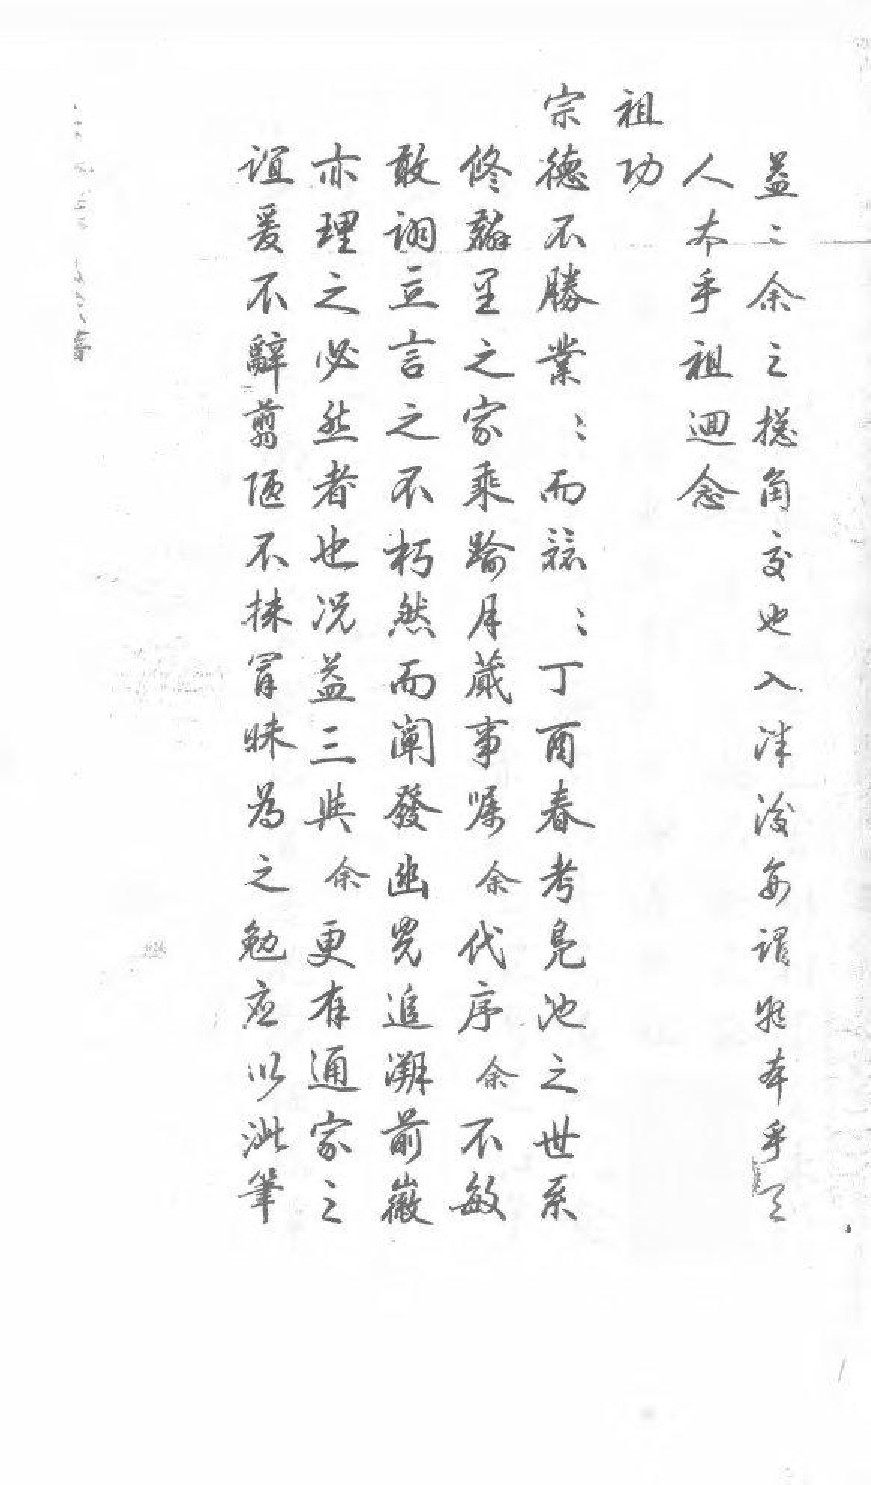 益三余之摠角交也入泮後每謂物本乎天
人本乎祖迴念
祖功
宗德不勝業〻而兢〻丁酉春考凫池之世系
修辭里之家乘踰月蕆事嘱余代序余不敏
敢詡立言之不朽然而阐發幽光追溯前徽
亦理之必然者也况益三與余更有通家之
誼爰不辭翦陋不揣冒昧為之勉应以泚筆